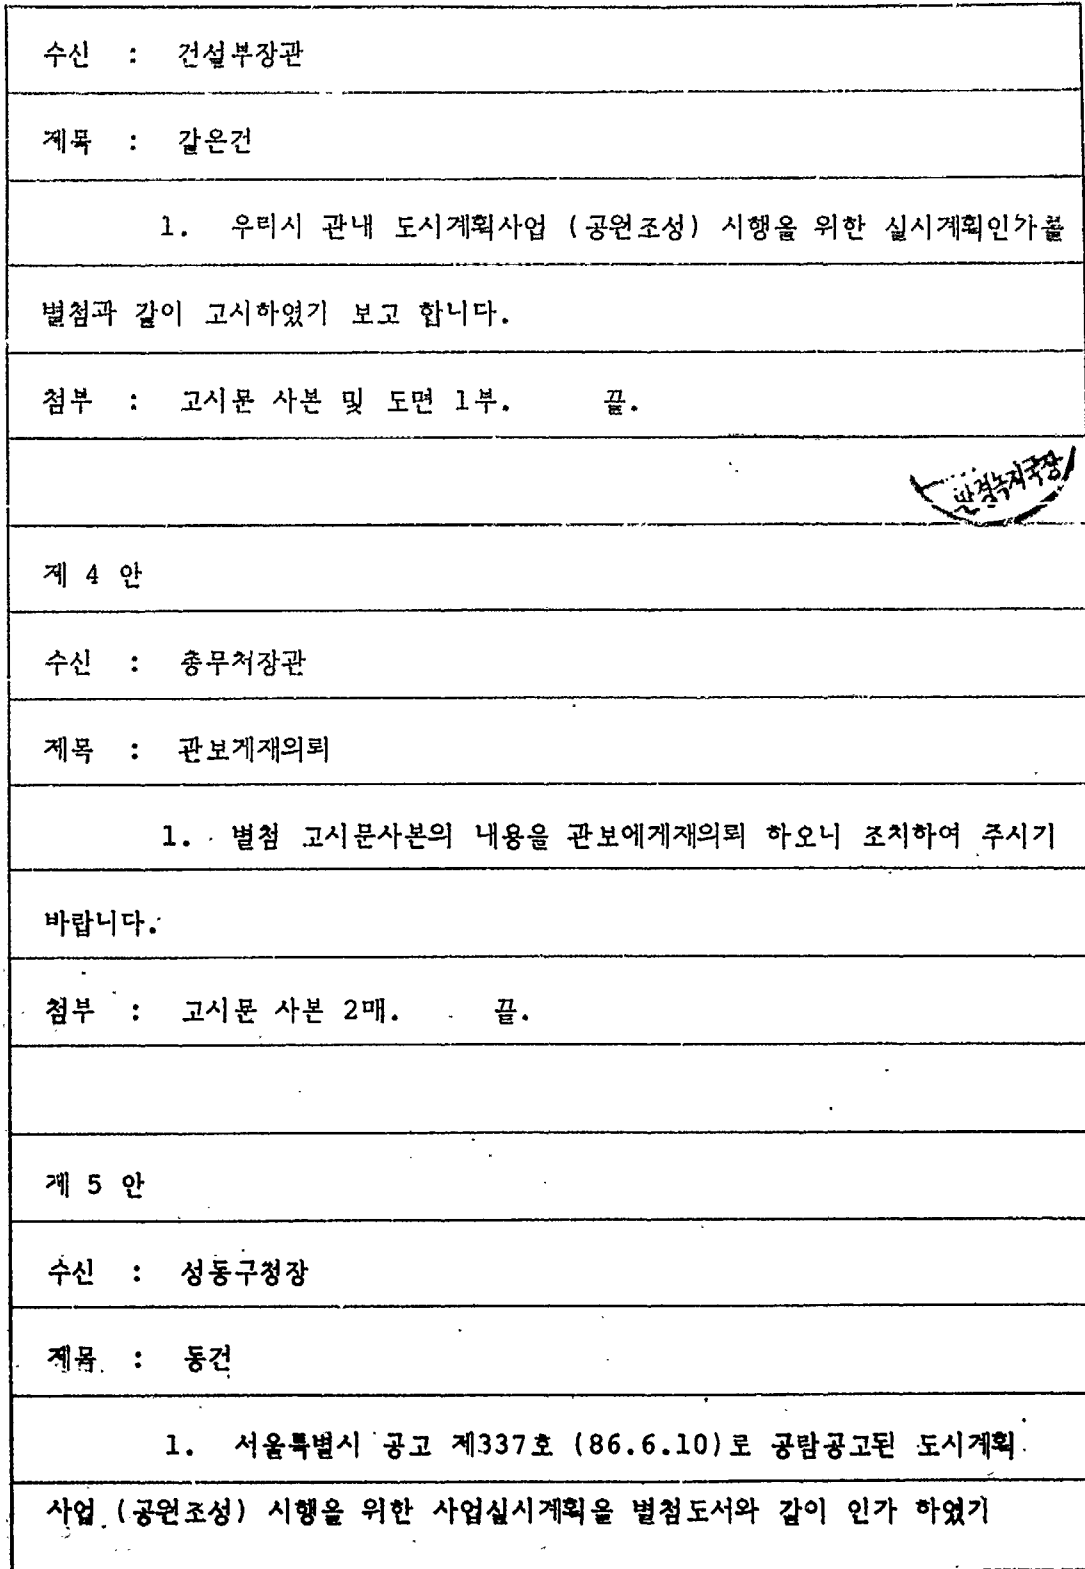 수신 : 건설부장관
제목 : 같은건
1. 우리시 관내 도시계획사업 (공원조성) 시행을 위한 실시계획인가를
별첨과 같이 고시하였기 보고 합니다.
첨부 : 고시문 사본 및 도면 1부. 끝.
제 4 안
수신 : 총무처장관
제목 : 관보게재의뢰
1. 별첨 고시문사본의 내용을 관보에게재의뢰 하오니 조치하여 주시기
바랍니다.
첨부 : 고시문 사본 2매. 끝.
제 5 안
수신 : 성동구청장
제목 : 동건
1. 서울특별시 공고 제337호 (86.6.10)로 공람공고된 도시계획
사업 (공원조성) 시행을 위한 사업실시계획을 별첨도서와 같이 인가 하였기